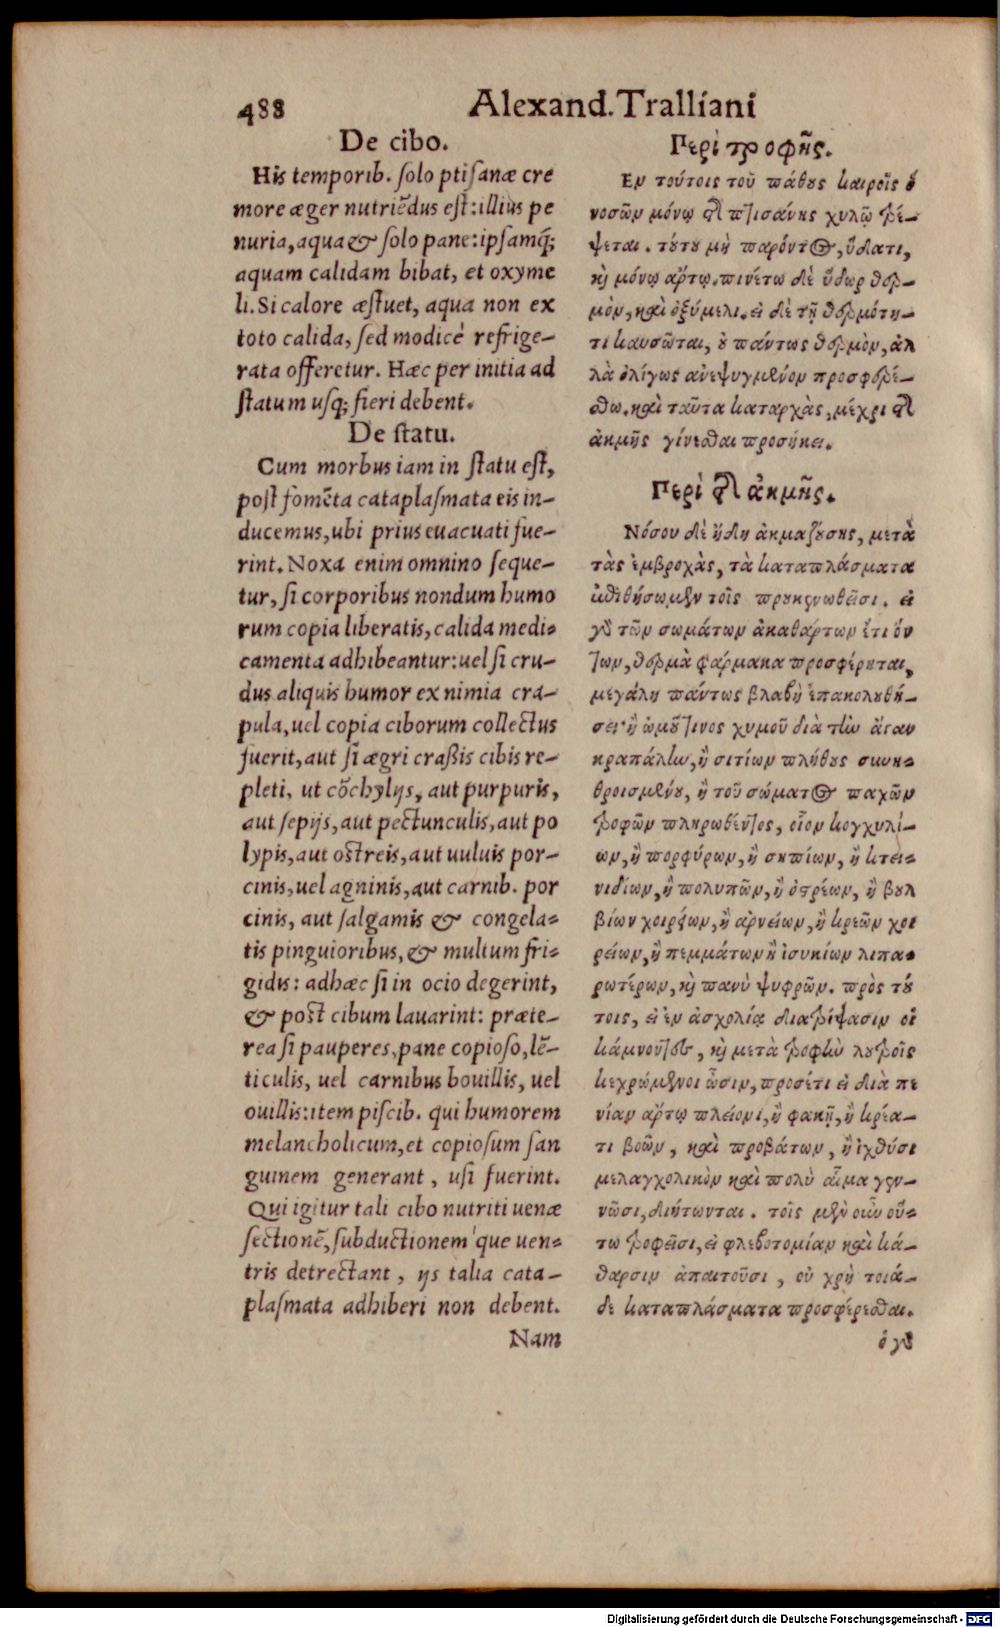 488
Alexand. Tralliani
De cibo.
His temporib. solo ptisanæ cre
more æger nutriẽdus est: illius pe
nuria, aqua & solo pane: ipsamq́;
aquam calidam bibat, et oxyme
li. Si calore æstuet, aqua non ex
toto calida, sed modicè refrige-
rata offeretur. Hæc per initia ad
statum usq; fieri debent.
De statu.
Cum morbus iam in statu est,
post fomẽta cataplasmata eis in-
ducemus, ubi prius euacuati fue-
rint. Noxa enim omnino seque-
tur, si corporibus nondum humo
rum copia liberatis, calida medi-
camenta adhibeantur: uel si cru-
dus aliquis humor ex nimia cra-
pula, uel copia ciborum collectus
fuerit, aut si ægri crassis cibis re-
pleti, ut cõchylijs, aut purpuris,
aut sepijs, aut pectunculis, aut po
lypis, aut ostreis, aut uuluis por-
cinis, uel agninis, aut carnib. por
cinis, aut salgamis & congela-
tis pinguioribus, & multum fri-
gidis: adhæc si in ocio degerint,
& post cibum lauarint: præte-
rea si pauperes, pane copioso, lẽ-
ticulis, uel carnibus bouillis, uel
ouillis: item piscib. qui humorem
melancholicum, et copiosum san
guinem generant, usi fuerint.
Qui igitur tali cibo nutriti uenæ
sectionẽ, subductionem que uen-
tris detrectant, ijs talia cata-
plasmata adhiberi non debent.
Nam
Περὶ τροφῆς.
Εν τούτοις τοῦ πάθους καιροῖς ὁ
νοσῶν μόνῳ τῆς πτισάνης χυλῷ θρέ-
ψεται. τούτου μὴ παρόντος, ὕδατι,
καὶ μόνῳ ἄρτῳ. πινέτω δὲ ὕδωρ θερ-
μὸν, καὶ ὀξύμελι. εἰ δὲ τῇ θερμότη-
τι καυσῶται, οὐ πάντως θερμὸν, ἀλ
λὰ ὀλίγως ἀνεψυγμένον προσφερέ-
σθω. καὶ ταῦτα καταρχὰς, μέχρι τῆς
ἀκμῆς γίνεσθαι προσήκει.
Περὶ τῆς ἀκμῆς.
Νόσου δὲ ἤδη ἀκμαζούσης, μετὰ
τὰς ἐμβροχὰς, τὰ καταπλάσματα
ἐπιθήσωμεν τοῖς προκενωθεῖσι. εἰ
γὰρ τῶν σωμάτων ἀκαθάρτων ἔτι ὄν
των, θερμὰ φάρμακα προσφέρηται,
μεγάλη πάντως βλαβὴ ἐπακολουθή-
σει· ἢ ὠμοῦ τινος χυμοῦ διὰ τὴν ἄγαν
κραπάλην, ἢ σιτίων πλήθους συνη-
θροισμένου, ἢ τοῦ σώματος παχῶν
τροφῶν πληρωθέντος, οἷον κογχυλί-
ων, ἢ πορφύρων, ἢ σηπίων, ἢ κτει-
νιδίων, ἢ πολυπῶν, ἢ ὀστρέων, ἢ βουλ
βίων χοιρείων, ἢ ἀρνείων, ἢ κρεῶν χοι
ρείων, ἢ πεμμάτων ἢ ἰσυκίων λιπα-
ρωτέρων, καὶ πανὺ ψυφρῶν. πρὸς τού
τοις, εἰ ἐν ἀσχολίᾳ διατρίψασιν οἱ
κάμνοντες, καὶ μετὰ τροφὴν λουτροῖς
κεχρώμενοι ὦσιν, προσέτι εἰ διὰ πε
νίαν ἄρτῳ πλείονι, ἢ φακῇ, ἢ κρέα-
τι βοῶν, καὶ προβάτων, ἢ ἰχθύσι
μελαγχολικὸν καὶ πολὺ αἷμα γεν-
νῶσι, διήτωνται. τοῖς μὲν οὖν οὕ-
τω τροφεῖσι, εἰ φλεβοτομίαν καὶ κά-
θαρσιν ἀπαιτοῦσι, οὐ χρὴ τοιά-
δε καταπλάσματα προσφέρεσθαι.
ὁ γὰρ
Digitalisierung gefördert durch die Deutsche Forschungsgemeinschaft - DFG